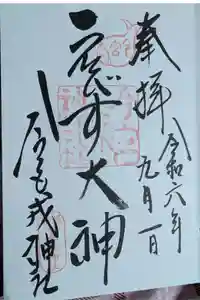 奉拝
令和六年
九月一日
えびす大神
戎神社